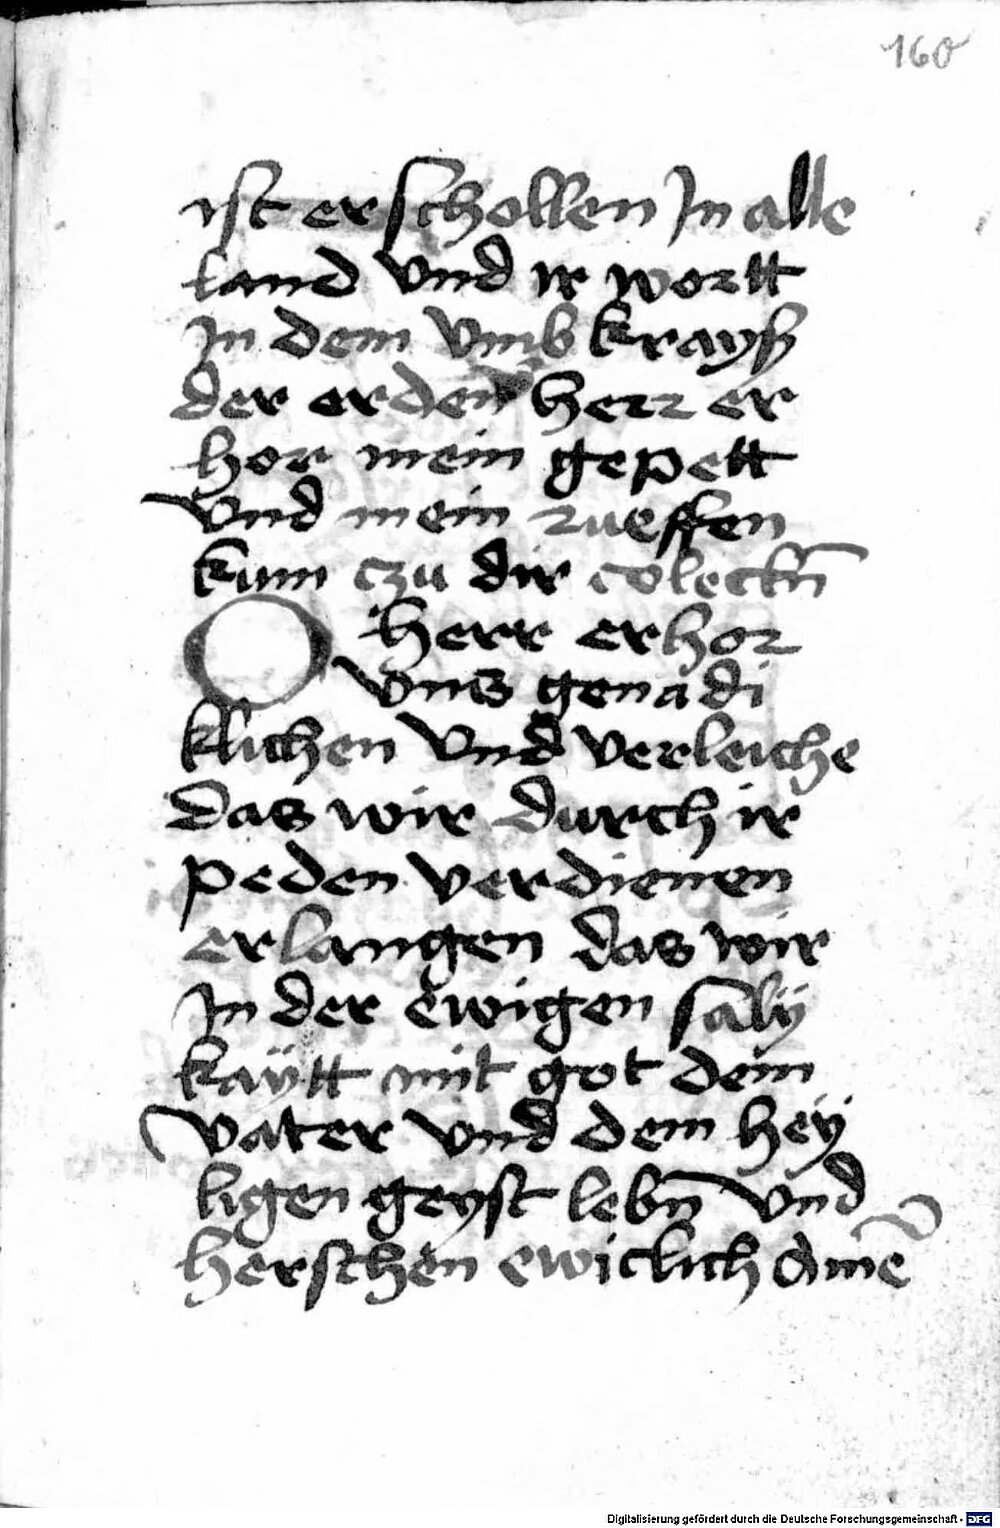 160
ist er schollen In alle
land vnd ir wortt
In dem vmb krayß
der erden herr er
hor mein gepett
vnd mein rueffen
kum czu dir colleckn̄
O herr erhor
vns genadi
klichen vnd verleiche
das wir durch ir
peden verdienen
erlangen das wir
In der ewigen saly
kaÿtt mit got dem
vater vnd dem heÿ
ligen geyst lebn̄ vnd
herschen ewiclich Amē
Digitalisierung gefördert durch die Deutsche Forschungsgemeinschaft - DFG